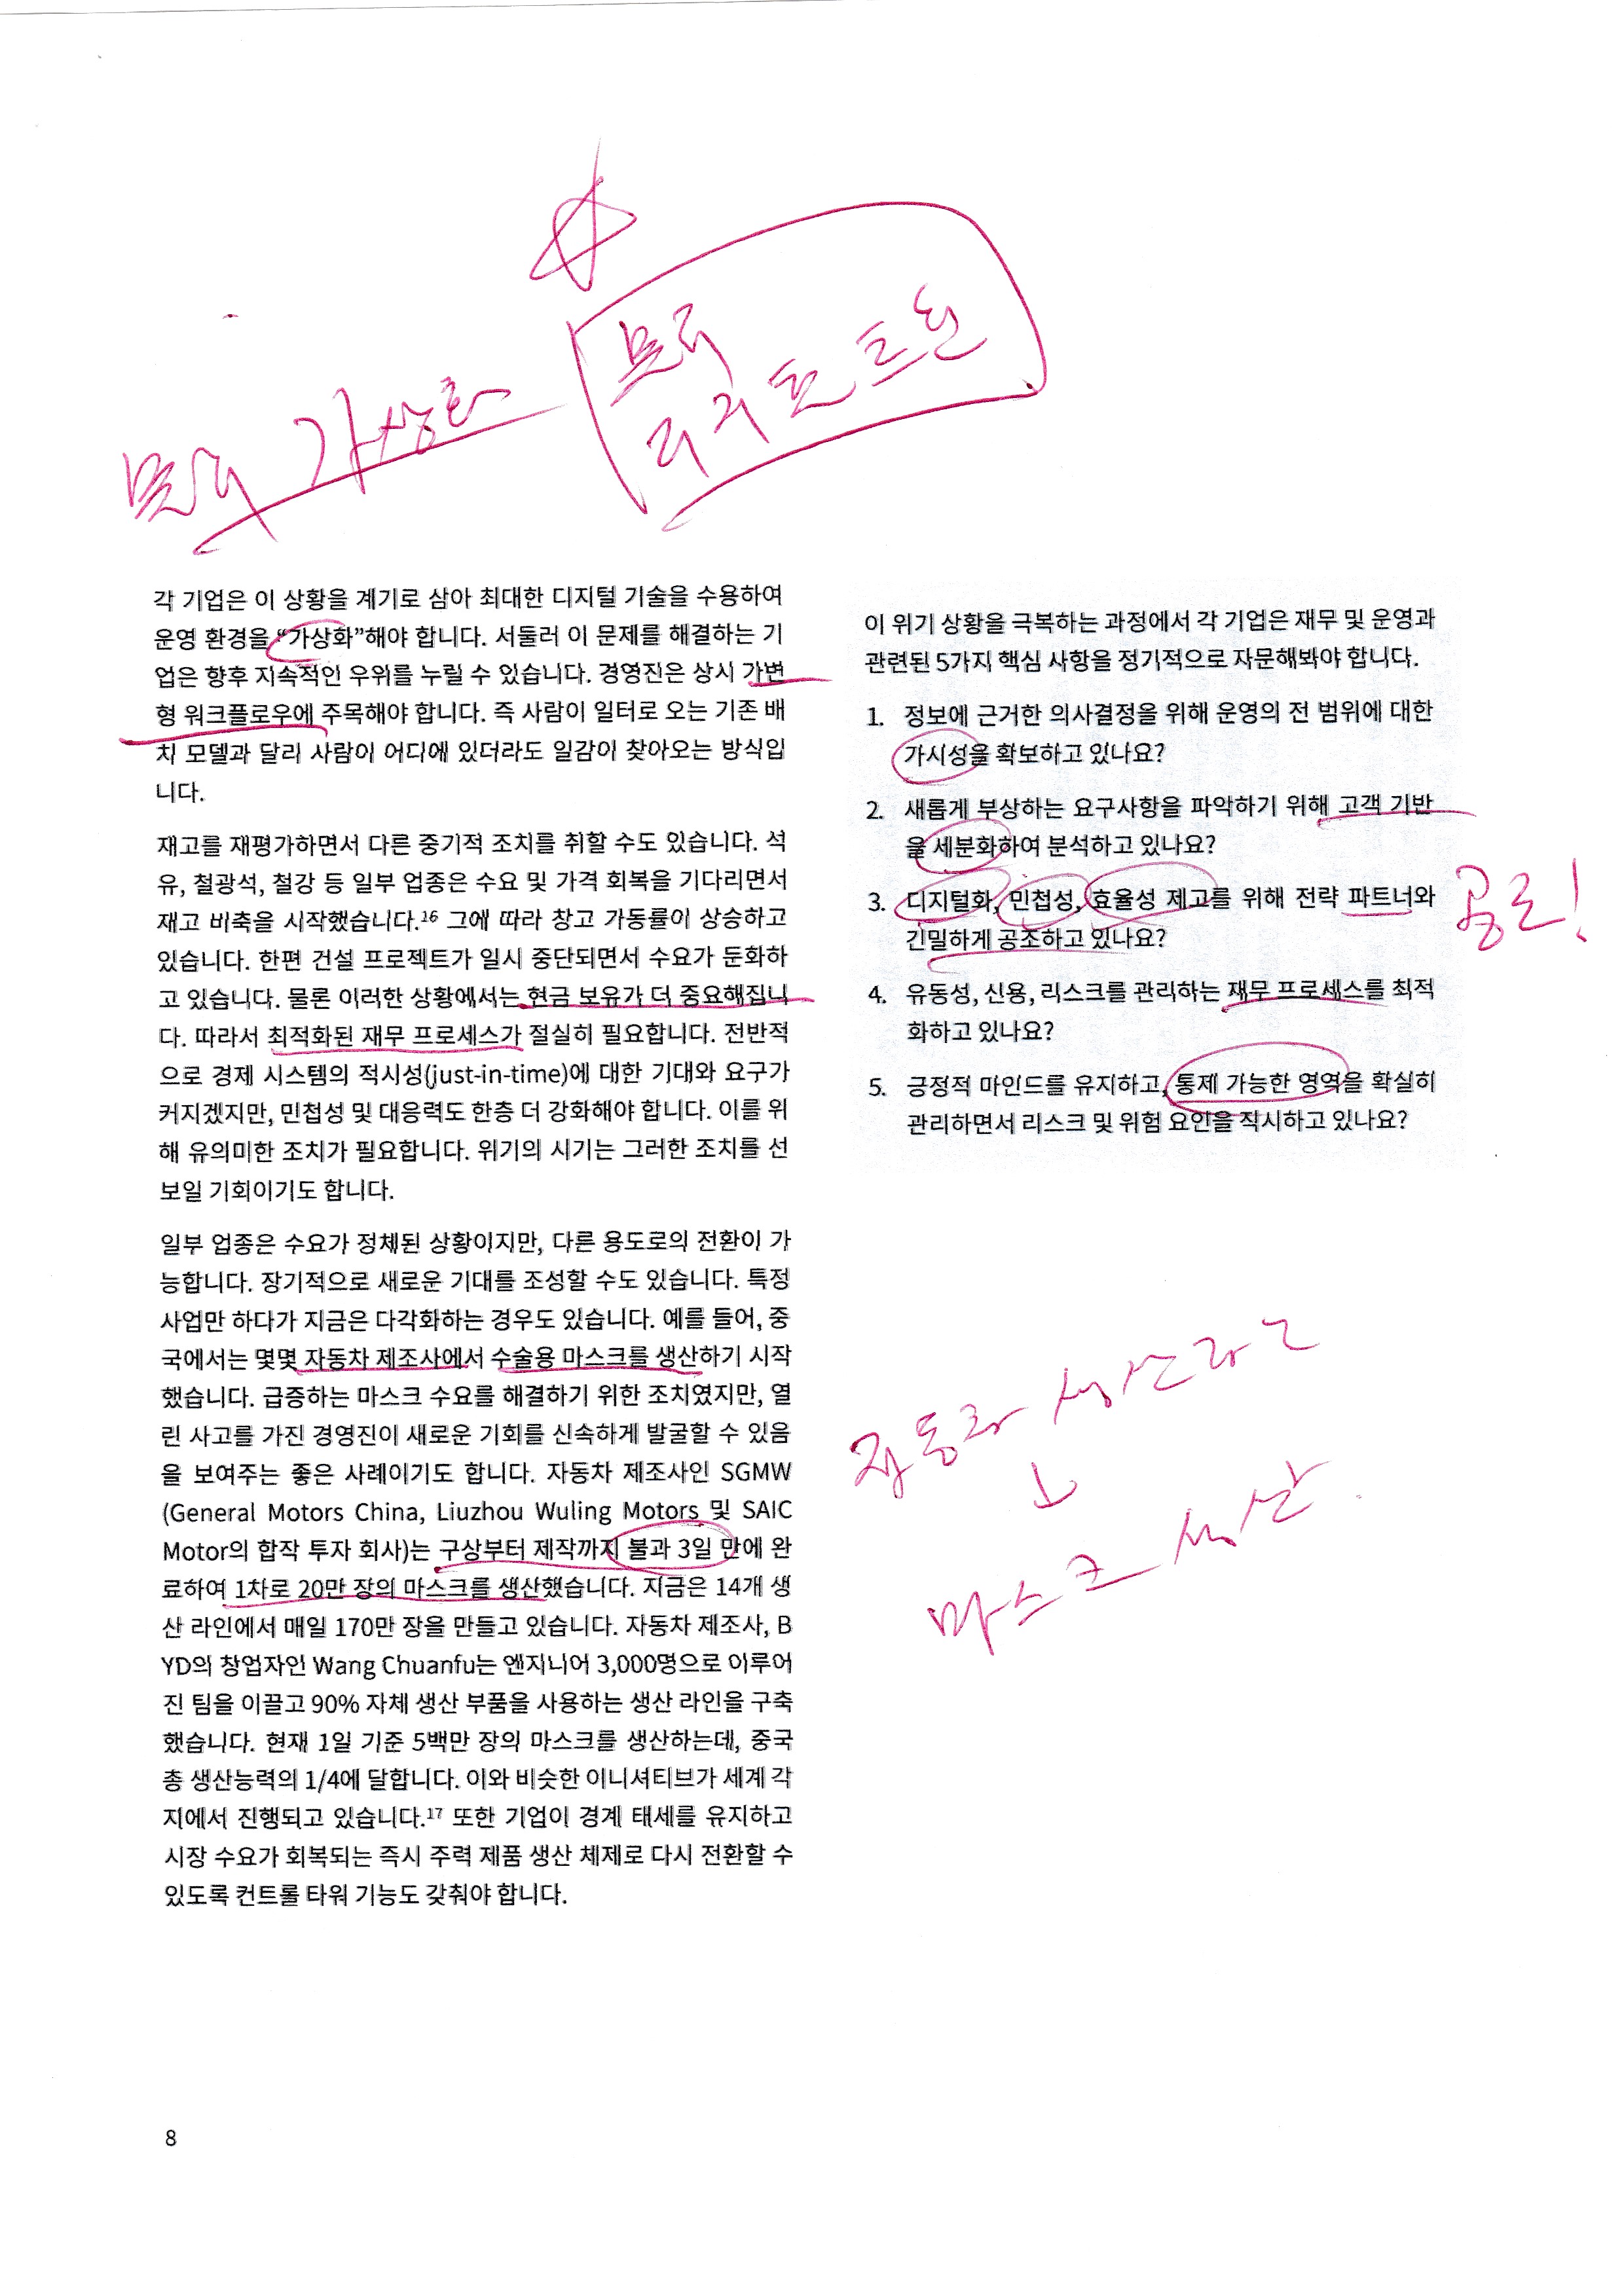 물리
리지호트린
가상화
각 기업은 이 상황을 계기로 삼아 최대한 디지털 기술을 수용하여
운영 환경을 “가상화”해야 합니다. 서둘러 이 문제를 해결하는 기
업은 향후 지속적인 우위를 누릴 수 있습니다. 경영진은 상시 가변
형 워크플로우에 주목해야 합니다. 즉 사람이 일터로 오는 기존 배
치 모델과 달리 사람이 어디에 있더라도 일감이 찾아오는 방식입
니다.
재고를 재평가하면서 다른 중기적 조치를 취할 수도 있습니다. 석
유, 철광석, 철강 등 일부 업종은 수요 및 가격 회복을 기다리면서
재고 비축을 시작했습니다.16 그에 따라 창고 가동률이 상승하고
있습니다. 한편 건설 프로젝트가 일시 중단되면서 수요가 둔화하
고 있습니다. 물론 이러한 상황에서는 현금 보유가 더 중요해집니
다. 따라서 최적화된 재무 프로세스가 절실히 필요합니다. 전반적
으로 경제 시스템의 적시성(just-in-time)에 대한 기대와 요구가
커지겠지만, 민첩성 및 대응력도 한층 더 강화해야 합니다. 이를 위
해 유의미한 조치가 필요합니다. 위기의 시기는 그러한 조치를 선
보일 기회이기도 합니다.
일부 업종은 수요가 정체된 상황이지만, 다른 용도로의 전환이 가
능합니다. 장기적으로 새로운 기대를 조성할 수도 있습니다. 특정
사업만 하다가 지금은 다각화하는 경우도 있습니다. 예를 들어, 중
국에서는 몇몇 자동차 제조사에서 수술용 마스크를 생산하기 시작
했습니다. 급증하는 마스크 수요를 해결하기 위한 조치였지만, 열
린 사고를 가진 경영진이 새로운 기회를 신속하게 발굴할 수 있음
을 보여주는 좋은 사례이기도 합니다. 자동차 제조사인 SGMW
(General Motors China, Liuzhou Wuling Motors 및 SAIC
Motor의 합작 투자 회사)는 구상부터 제작까지 불과 3일 만에 완
료하여 1차로 20만 장의 마스크를 생산했습니다. 지금은 14개 생
산 라인에서 매일 170만 장을 만들고 있습니다. 자동차 제조사, B
YD의 창업자인 Wang Chuanfu는 엔지니어 3,000명으로 이루어
진 팀을 이끌고 90% 자체 생산 부품을 사용하는 생산 라인을 구축
했습니다. 현재 1일 기준 5백만 장의 마스크를 생산하는데, 중국
총 생산능력의 1/4에 달합니다. 이와 비슷한 이니셔티브가 세계 각
지에서 진행되고 있습니다.17 또한 기업이 경계 태세를 유지하고
시장 수요가 회복되는 즉시 주력 제품 생산 체제로 다시 전환할 수
있도록 컨트롤 타워 기능도 갖춰야 합니다.
이 위기 상황을 극복하는 과정에서 각 기업은 재무 및 운영과
관련된 5가지 핵심 사항을 정기적으로 자문해봐야 합니다.
1. 정보에 근거한 의사결정을 위해 운영의 전 범위에 대한
가시성을 확보하고 있나요?
2. 새롭게 부상하는 요구사항을 파악하기 위해 고객 기반
을 세분화하여 분석하고 있나요?
3. 디지털화, 민첩성, 효율성 제고를 위해 전략 파트너와
긴밀하게 공조하고 있나요?
4. 유동성, 신용, 리스크를 관리하는 재무 프로세스를 최적
화하고 있나요?
5. 긍정적 마인드를 유지하고, 통제 가능한 영역을 확실히
관리하면서 리스크 및 위험 요인을 직시하고 있나요?
자동차 생산라인
↓
마스크 생산
8